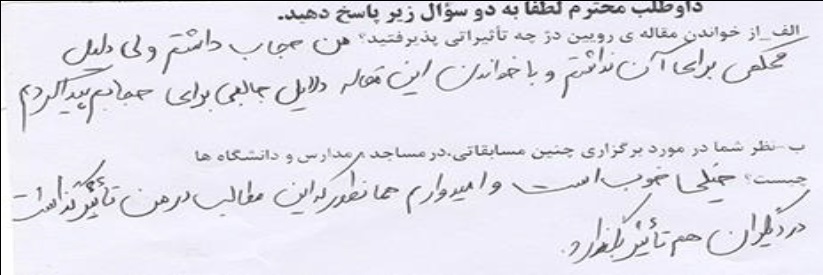 داوطلب محترم لطفا به دو سؤال زیر پاسخ دهید.
الف_از خواندن مقاله ی رویین دژ چه تأثیراتی پذیرفتید؟ من حجاب داشتم ولی دلیل
محکمی برای آن نداشتم و با خواندن این مقاله دلایل جالبی برای حجابم پیدا کردم
ب-نظر شما در مورد برگزاری چنین مسابقاتی،در مساجد ،مدارس و دانشگاه ها
چیست؟ خیلی خوب است و امیدوارم همانطور که این مطالب در من تأثیر گذاشت
در دیگران هم تأثیر بگذارد.